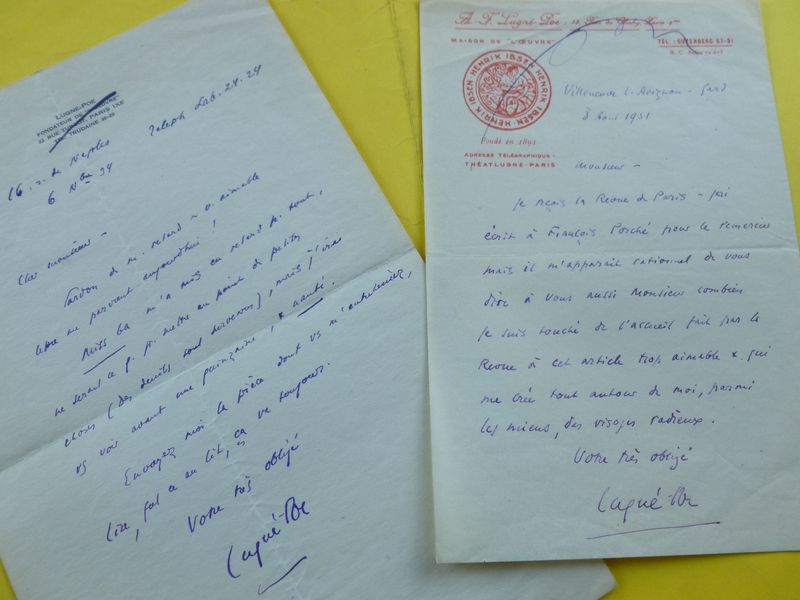 LUGNE-POE
FONDATEUR DE L'ŒUVRE
PARIS IXE
TRUDAINE
16 r. de Naples
6 Nbre 34
Cher monsieur -
Pardon de m. retard - v. aimable
lettre me parvient aujourd'hui !
Miss Ba m'a mis en retard pr. tout,
ne serait ce q. pr. mettre au point de petites
choses (Des demils sont survenus), mais j'irai
vs voir avant une quinzaine, santé.
Envoyez moi la pièce dont vs m'entreteniez,
lire, fût ce au lit, ça va toujours.
Votre très obligé
Lugné-Poe
A.-F. Lugné-Poe
MAISON DE "L'ŒUVRE"
TÉL. : GUTENBERG 67-31
HENRIK IBSEN · HENRIK IBSEN · HENRIK IBSEN
Fondé en 1893
ADRESSE TÉLÉGRAPHIQUE :
THÉATLUGNÉ-PARIS
Villeneuve l. Avignon - Gard
8 Aout 1931
Monsieur -
Je reçois la Revue de Paris - j'ai
écrit à François Porché pour le remercier
mais il m'apparait rationnel de vous
dire à vous aussi Monsieur combien
je suis touché de l'accueil fait par la
Revue à cet article trop aimable & qui
me crée tout autour de moi, parmi
les miens, des visages radieux.
Votre très obligé
Lugné-Poe